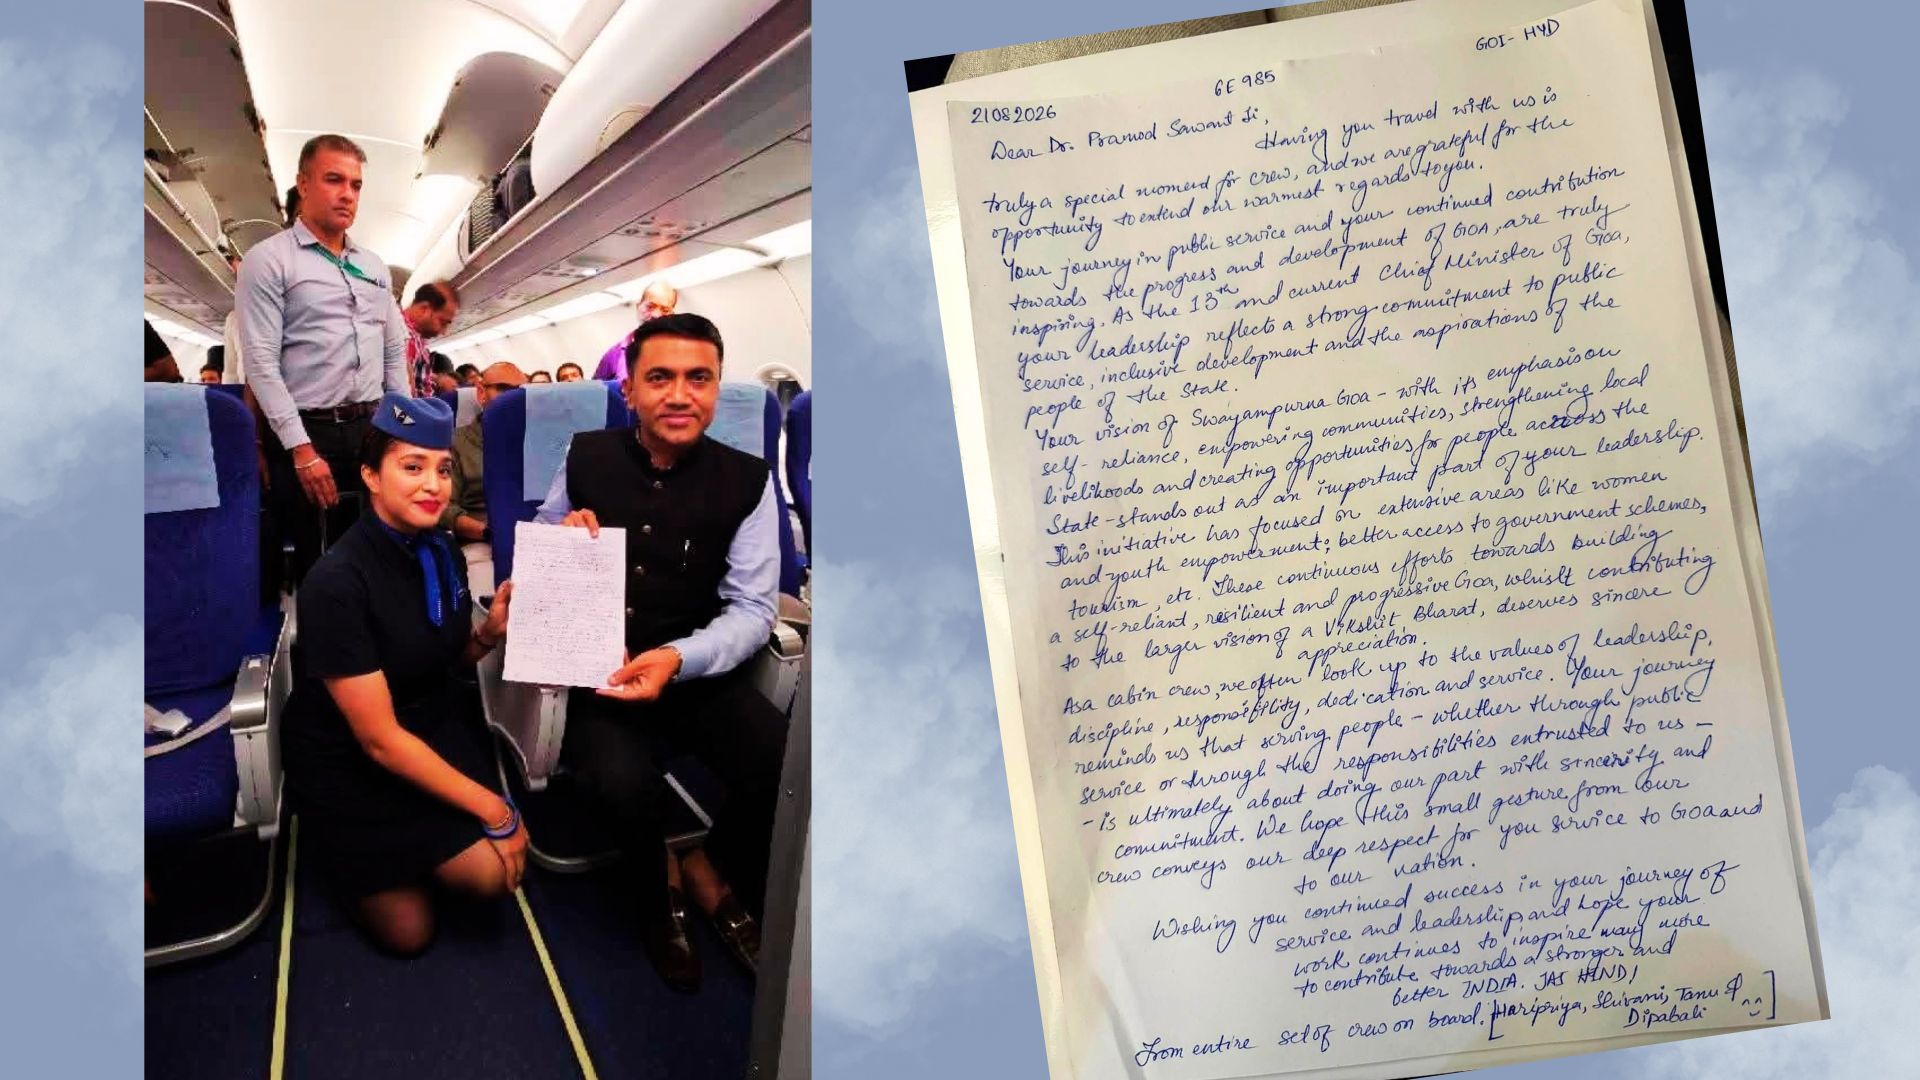 GOI - HYD
6E 985
21082026
Dear Dr. Pramod Sawant Ji,
Having you travel with us is
truly a special moment for crew, and we are grateful for the
opportunity to extend our warmest regards to you.
Your journey in public service and your continued contribution
towards the progress and development of GOA, are truly
inspiring. As the 13th and current Chief Minister of Goa,
your leadership reflects a strong commitment to public
service, inclusive development and the aspirations of the
people of the State.
Your vision of Swayampurna Goa - with its emphasis on
self- reliance, empowering communities, strengthening local
livelihoods and creating opportunities for people across the
State - stands out as an important part of your leadership.
This initiative has focused on extensive areas like women
and youth empowerment; better access to government schemes,
tourism, etc. These continuous efforts towards building
a self-reliant, resilient and progressive Goa, whislt contributing
to the larger vision of a Vikshit Bharat, deserves sincere
appreciation.
As a cabin crew, we often look up to the values of leadership,
discipline, responsibility, dedication and service. Your journey
reminds us that serving people - whether through public
service or through the responsibilities entrusted to us -
- is ultimately about doing our part with sincerity and
commitment. We hope this small gesture from our
crew conveys our deep respect for you service to Goa and
to our nation.
Wishing you continued success in your journey of
service and leadership and hope your
work continues to inspire many more
to contribute towards a stronger and
better INDIA. JAI HIND!
From entire set of crew on board. [Haripriya, Shivani, Tanu &
Dipabali ]